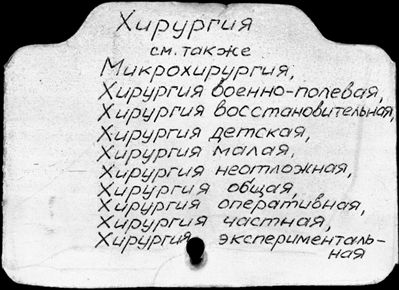 Хирургия
см. также
Микрохирургия,
Хирургия военно-полевая,
Хирургия восстановительная,
Хирургия детская,
Хирургия малая,
Хирургия неотложная,
Хирургия общая,
Хирургия оперативная,
Хирургия частная,
Хирургия эксперименталь-
ная